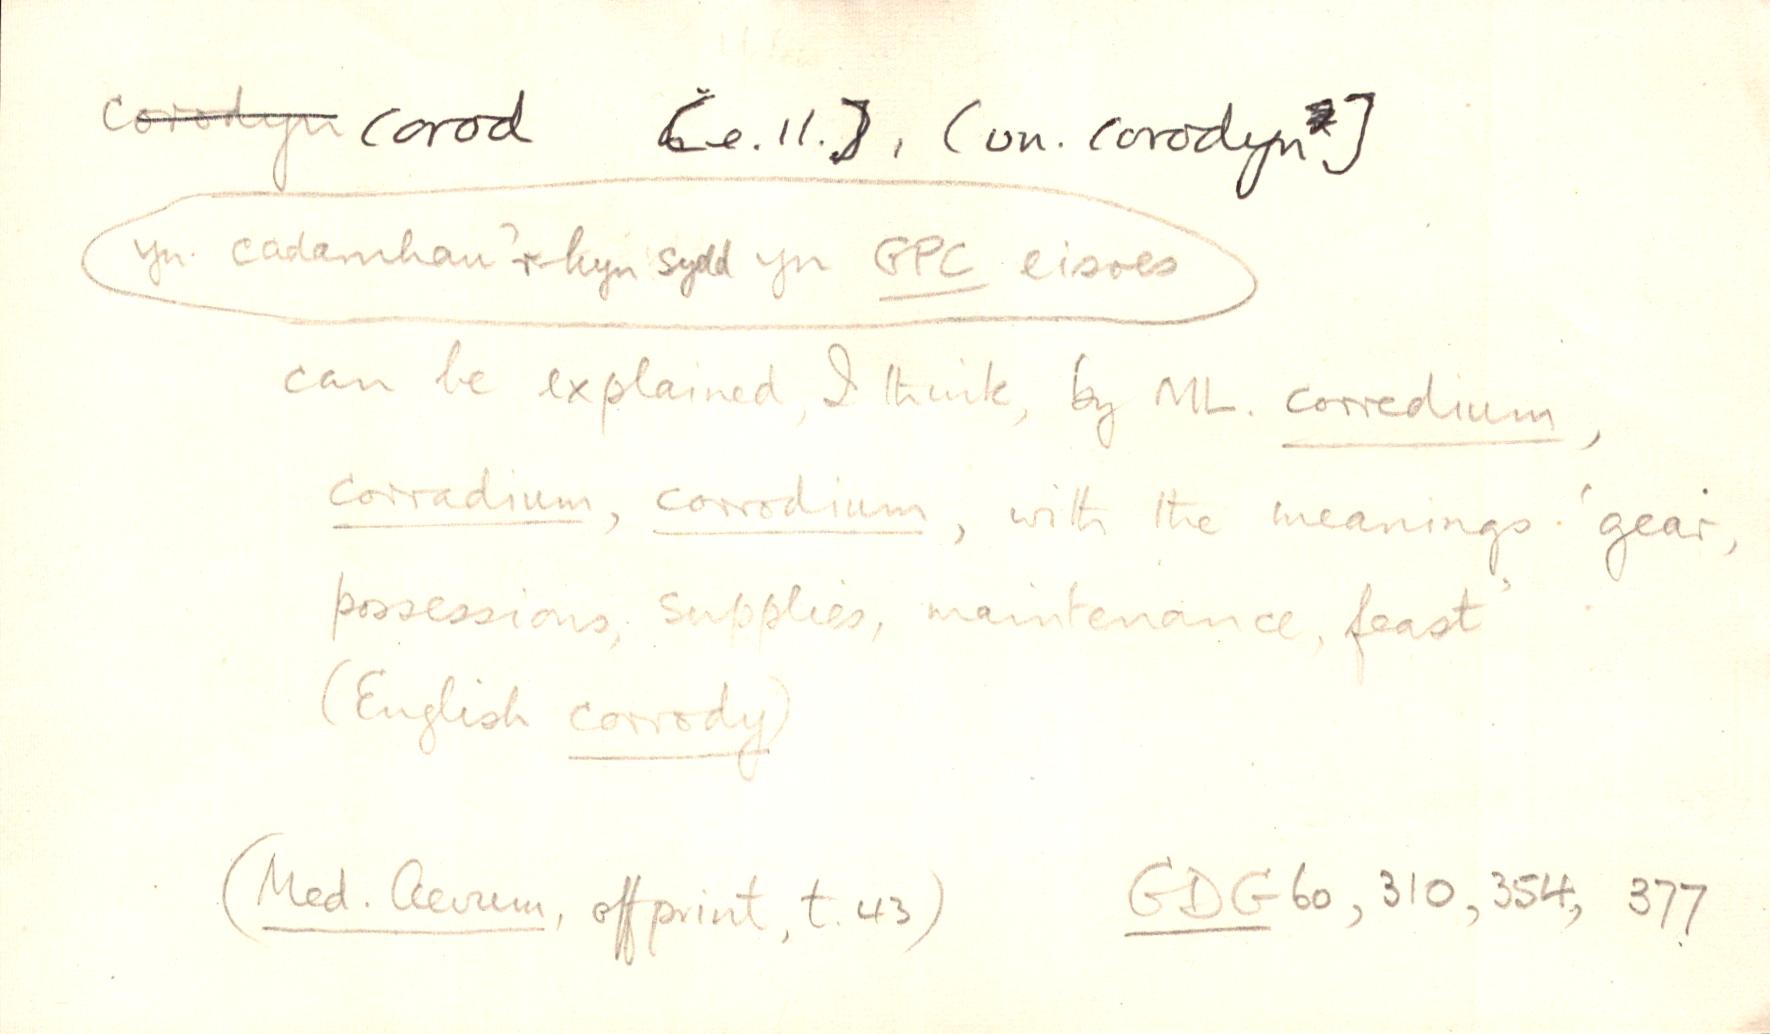 corodyn corod [e.ll.], (un. corodyn*]
yn cadarnhau'r hyn sydd yn GPC eisoes
can be explained, I think, by ML. corredium,
corradium, corrodium, with the meanings 'gear,
possessions, supplies, maintenance, feast'
(English corrody)
(Med. Aevum, offprint, t. 43) GDG 60, 310, 354, 377